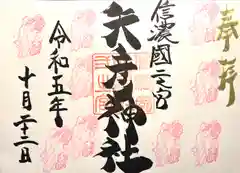 奉拝
信濃國二之宮
矢彦神社
令和五年
十月二十二日